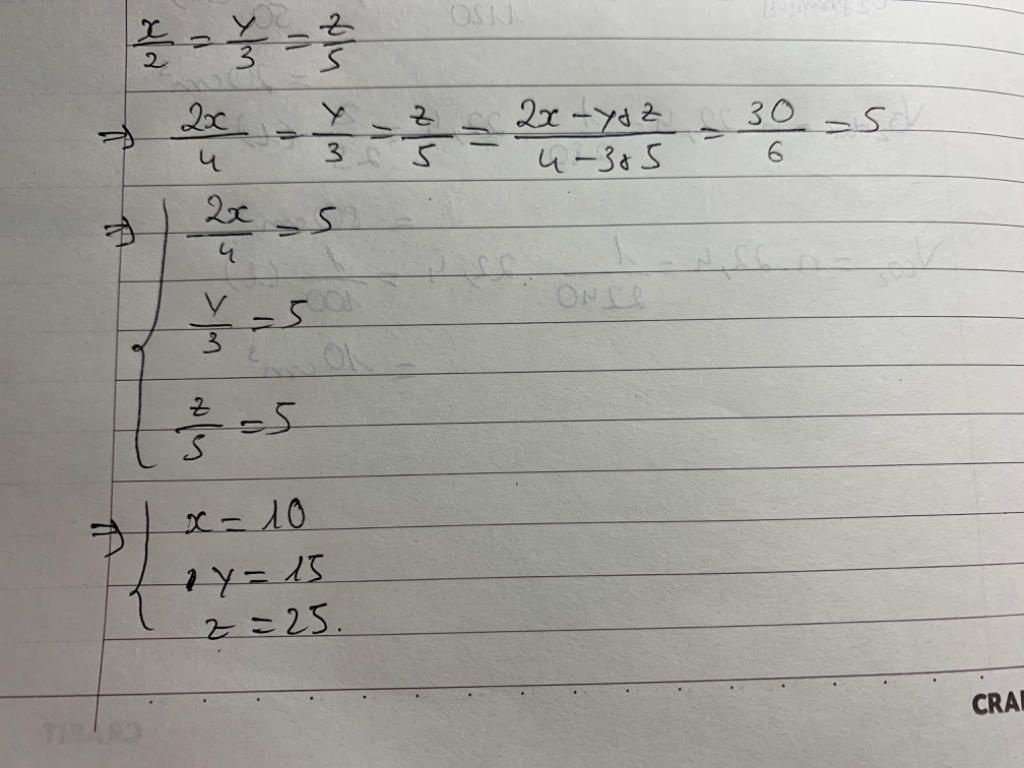 x/2 = y/3 = z/5
⇒ 2x/4 = y/3 = z/5 = (2x - y + z)/(4 - 3 + 5) = 30/6 = 5
⇒ { 2x/4 = 5
y/3 = 5
z/5 = 5
⇒ { x = 10
y = 15
z = 25.
CRA